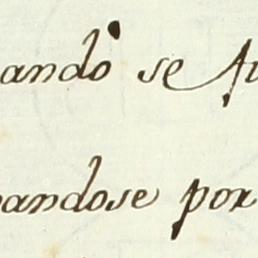 ando se
andose por